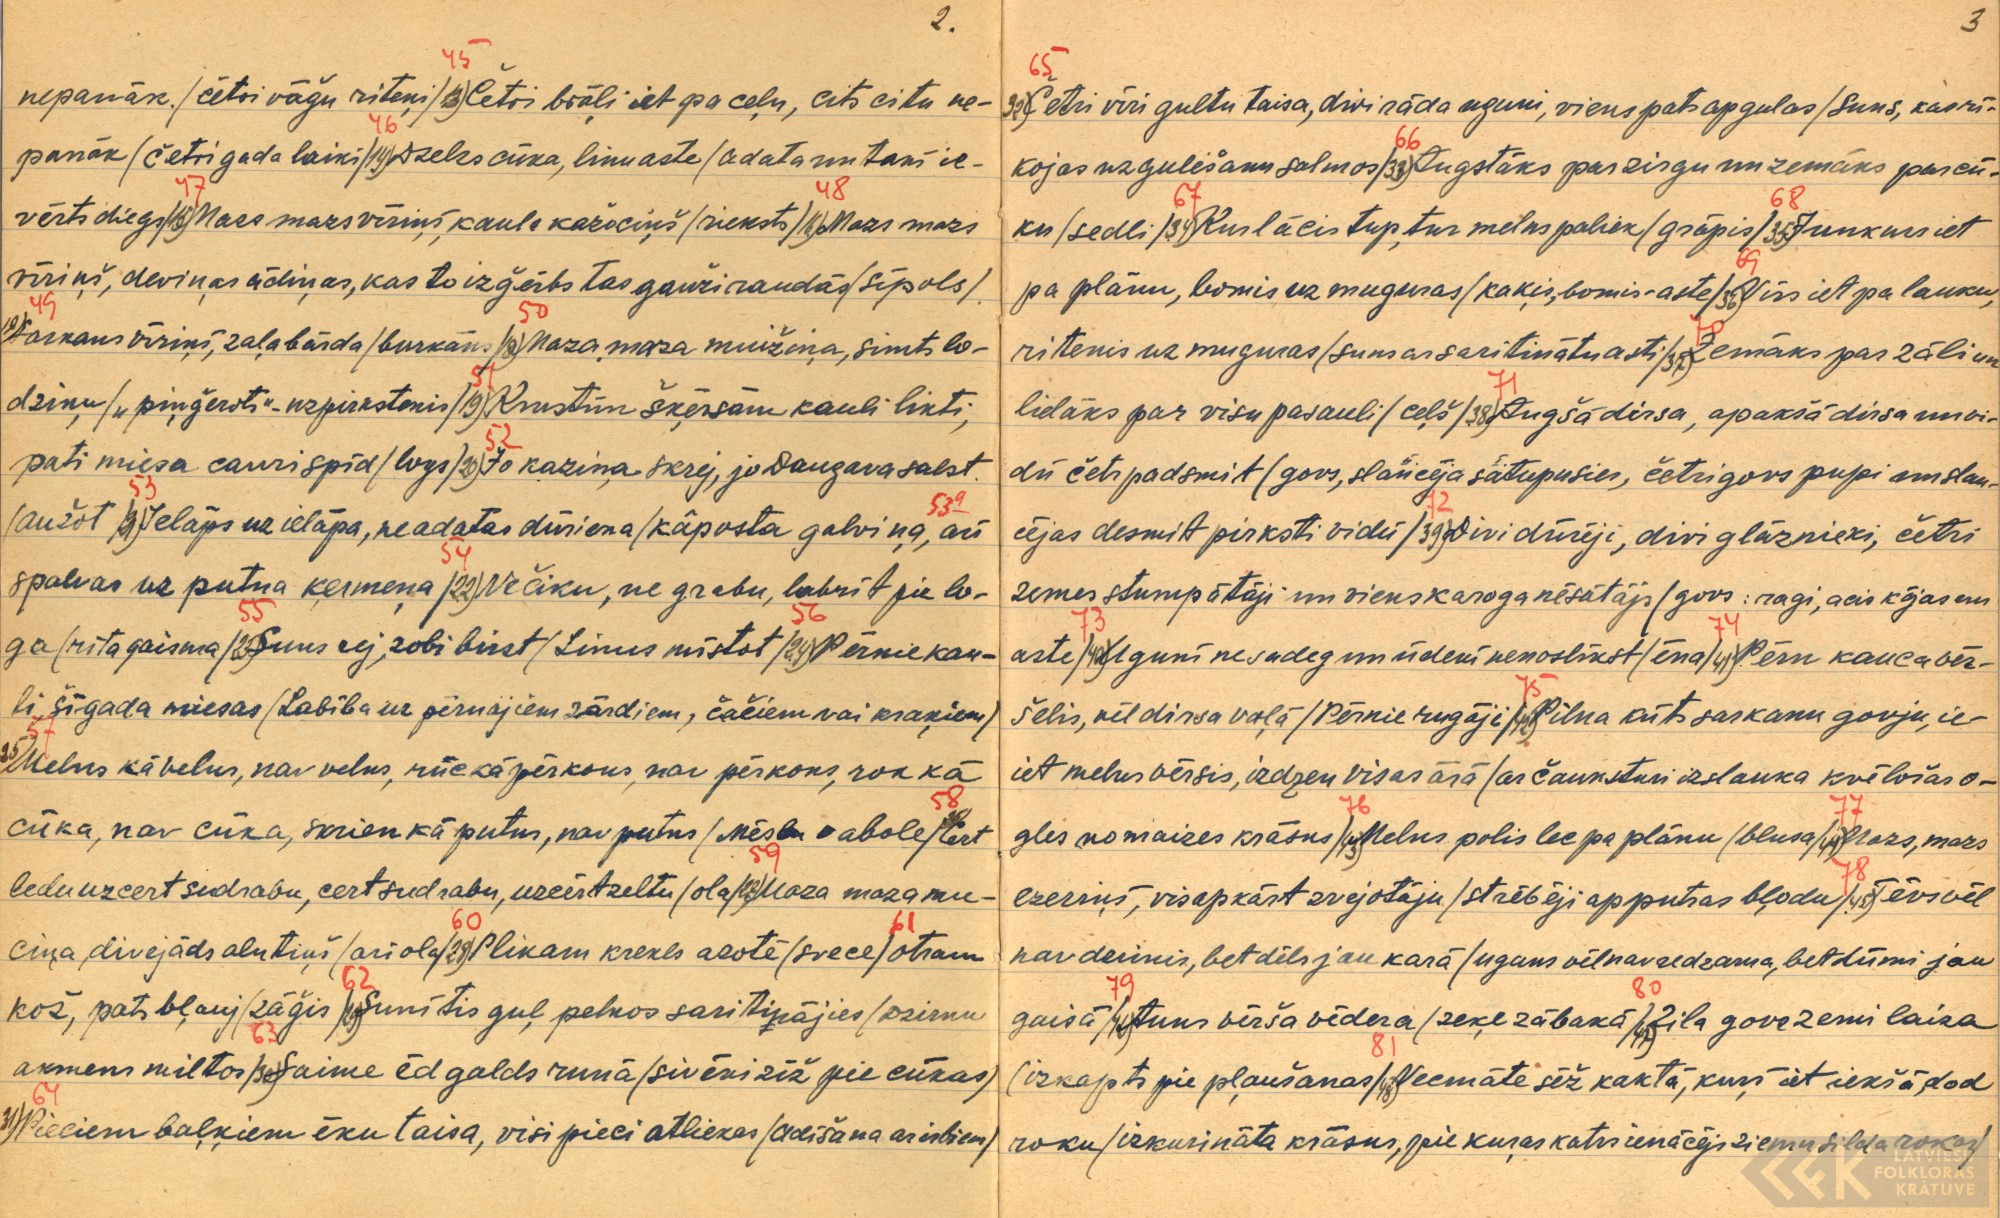 2.
45
nepanāk./četri vāģu riteņi/13)Četri brāļi iet pa ceļu, cits citu ne-
46
panāk/četri gada laiki/14)Dzelzs cūka, linu aste/adata un tanī ie-
47 48
vērts diegs/15)Mazs mazs vīriņš, kaula kažociņš/rieksts/16)Mazs mazs
vīriņš, deviņas ādiņas, kas to izģērbs tas gauži raudās/sīpols/.
49 50
17)Sarkans vīriņš, zaļa bārda/burkāns/18)Maza, maza muižiņa, simts lo-
51
dziņu/„piņģerots"-uzpirkstenis/19)Krustim šķērsām kauli likti,
52
pati miesa cauri spīd/logs/20)Jo kaziņa skrej, jo Daugava salst.
53 53a
/aužot/21)Ielāps uz ielāpa, ne adatas dūriena/kāposta galviņa, arī
54
spalvas uz putna ķermeņa/22)Ne čiku, ne grabu, labrīt pie lo-
55 56
ga/rīta gaisma/23)Suns rej, zobi birst/Linus mīstot/24)Pērnie kau-
li, šī gada miesas/Labība uz pērnajiem zārdiem, čačiem vai kraķiem/
57
25)Melns kā velns, nav velns, rūc kā pērkons, nav pērkons, rok kā
58
cūka, nav cūka, skrien kā putns, nav putns/mēslu vabole/26)Cert
59
ledu uzcert sudrabu, cert sudrabu, uzcērt zeltu/ola/27)Maza maza mu-
60 61
ciņa divejāds alutiņš/arī ola/28)Plikam krekls azotē/svece/otram
62
kož, pats bļauj/zāģis/29)Sunītis guļ pelnos saritinājies/Dzirnu
63
akmens miltos/30)Saime ēd galds runā/sivēni zīž pie cūkas/
64
31)Pieciem baļķiem ēku taisa, visi pieci atliekas/Adīšana ar irbiem/
3
65
32)Četri vīri gultu taisa, divi rāda uguni, viens pats apgulas/Suns, kas rī-
66
kojas uz gulēšanu salmos/33)Augstāks par zirgu un zemāks par cū-
67 68
ku/sedli/34)Kur lācis tup, tur melns paliek/grāpis/35)Junkurs iet
69
pa plānu, bomis uz muguras/kaķis, bomis-aste/36)Vīrs iet pa lauku,
70
ritenis uz muguras/suns ar saritinātu asti/37)Zemāks par zāli un
71
lielāks par visu pasauli/ceļš/38)Augšā dirsa, apakšā dirsa un vi-
dū četrpadsmit/govs, slaucēja sātupusies, četri govs pupi un slau-
72
cējas desmit pirksti vidū/39)Divi dūrēji, divi glāznieki, četri
zemes stumpātāji un viens karoga nēsātājs/govs: ragi, acis kājas un
73 74
aste/40)Ugunī nesadeg un ūdenī nenoslīkst/ēna/41)Pērn kauca vēr-
75
šelis, vēl dirsa vaļā/Pērnie rugāji/42)Pilna kūts sarkanu govju, ie-
iet melns vērsis, izdzen visas ārā/ar čauksturi izslauka kvēlošas o-
76 77
gles no maizes krāsns/43)Melns polis lec pa plānu/blusa/44)Mazs, mazs
78
ezeriņš, visapkārt zvejotāju/strēbēji ap putras bļodu/45)Tēvs vēl
nav dzimis, bet dēls jau karā/uguns vēl nav redzama, bet dūmi jau
79 80
gaisā/46)Auns vērša vēdera/zeķe zābakā/47)Zila govs zemi laiza
81
(izkapts pie pļaušanas/48)Vecmāte sēž kaktā, kurš iet iekšā, dod
roku/izkurināta krāsns, pie kuras katrs ienācējs ziemu silda rokas/
LATVIEŠU
FOLKLORAS
KRĀTUVE